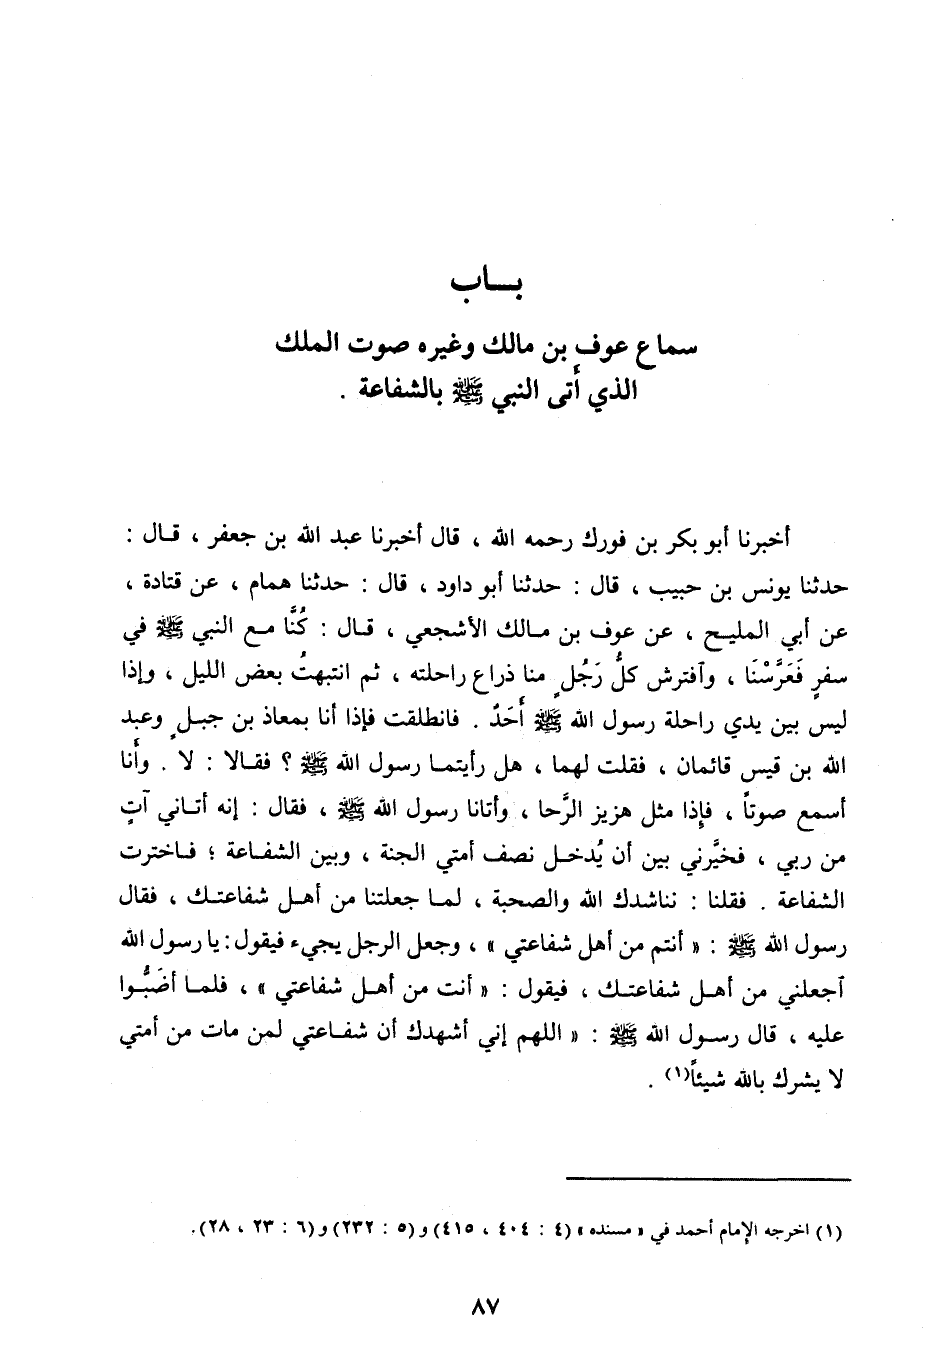 بـــاب
سماع عوف بن مالك وغيره صوت الملك
الذي أَتى النبي ﷺ بالشفاعة .
أخبرنا أبو بكر بن فورك رحمه الله ، قال أخبرنا عبد الله بن جعفر ، قـال :
حدثنا يونس بن حبيب ، قال : حدثنا أبو داود ، قال : حدثنا همام ، عن قتادة ،
عن أبي المليـح ، عن عوف بن مـالك الأشجعي ، قـال : كُنَّا مـع النبي ﷺ في
سفرٍ فَعَرَّسْنَا ، وٱفترش كلُّ رَجُلٍ منا ذراع راحلته ، ثم انتبهتُ بعض الليل ، وإذا
ليس بين يدي راحلة رسول الله ﷺ أَحَدٌ . فانطلقت فإذا أنا بمعاذ بن جبلٍ وعبد
الله بن قيس قائمان ، فقلت لهما ، هل رأيتمـا رسول الله ﷺ ؟ فقـالا : لا . وأَنا
أسمع صوتاً ، فإِذا مثل هزيز الرَّحا ، وأتانا رسول الله ﷺ ، فقال : إنه أتـاني آتٍ
من ربي ، فخيَّرني بين أن يُدخـل نصف أمتي الجنة ، وبين الشفـاعة ؛ فـاخترت
الشفاعة . فقلنا : نناشدك الله والصحبة ، لمـا جعلتنا من أهـل شفاعتـك ، فقال
رسول الله ﷺ : « أنتم من أهل شفاعتي » ، وجعل الرجل يجيء فيقول : يا رسول الله
ٱجعلني من أهـل شفاعتـك ، فيقول : « أنت من أهـل شفاعتي » ، فلمـا أضَبُّـوا
عليه ، قال رسـول الله ﷺ : « اللهم إني أشهدك أن شفـاعتي لمن مات من أمتي
لا يشرك بالله شيئاً(١) .
(١) اخرجه الإمام أحمد في « مسنده » (٤ : ٤٠٤ ، ٤١٥) و(٥ : ٢٣٢) و(٦ : ٢٣ ، ٢٨).
٨٧